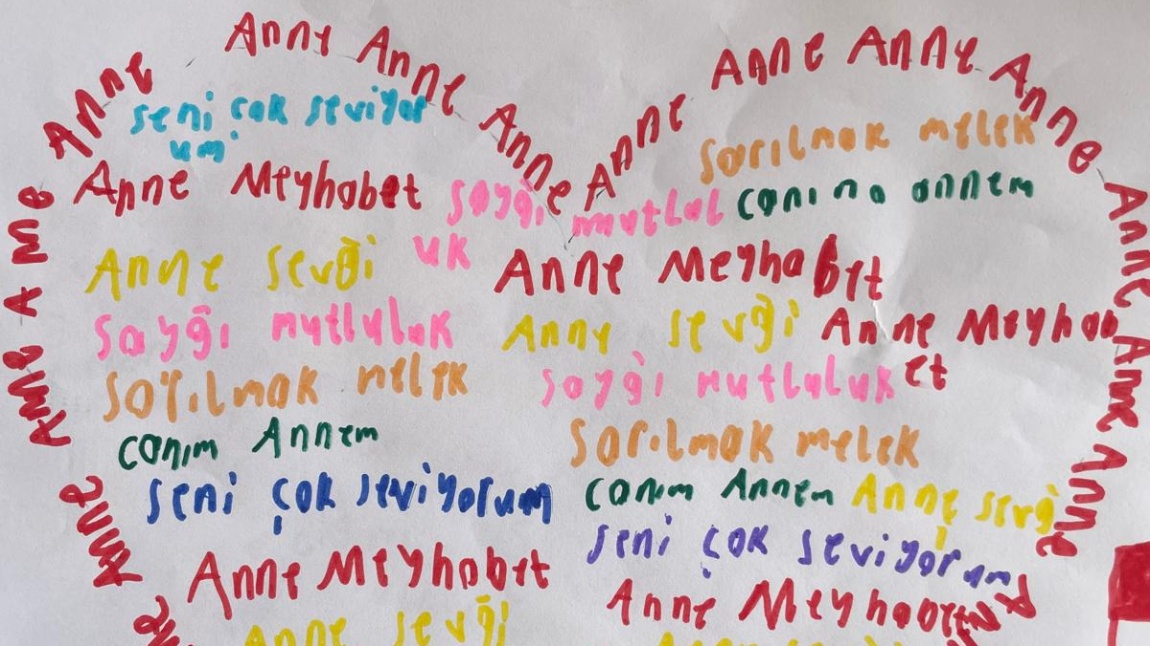 Anne Anne Anne Anne
Anne Anne Anne Anne
Anne Anne Anne Anne
Anne
seni çok seviyor
um
sarılmak melek
Anne Meyhabet
saygı mutlul
uk
canına annem
Anne sevği
Anne Meyhabet
sayğı mutluluk
Anne sevği
Anne Meyhab
et
sarılmak melek
sayğı mutluluk
canım Annem
sarılmak melek
seni çok seviyorum
canım Annem
Anne sevgi
seni çok seviyorum
Anne Meyhabet
Anne Meyhabet
Anne sevği